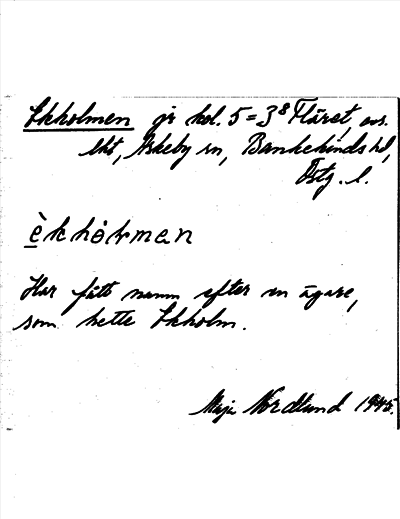 Ekholmen gr kol. 5=3⁸ Fläret, avs.
lht, Askeby sn, Bankekinds hd,
Östg. l.
èkhòlmen
Har fått namn efter en ägare,
som hette Ekholm.
Maja Nordlund 1945.